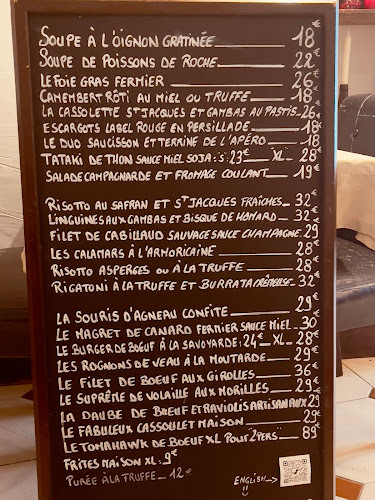 SOUPE À L'OIGNON GRATINÉE 18€
SOUPE DE POISSONS DE ROCHE 22€
LE FOIE GRAS FERMIER 26€
CAMEMBERT RÔTI AU MIEL OU TRUFFE 18€
LA CASSOLETTE ST JACQUES ET GAMBAS AU PASTIS 26€
ESCARGOTS LABEL ROUGE EN PERSILLADE 18€
LE DUO SAUCISSON ET TERRINE DE L'APÉRO 18€
TATAKI DE THON SAUCE MIEL SOJA: S: 23€ XL 28€
SALADE CAMPAGNARDE ET FROMAGE COULANT 19€
RISOTTO AU SAFRAN ET ST JACQUES FRAÎCHES 32€
LINGUINES AUX GAMBAS ET BISQUE DE HOMARD 32€
FILET DE CABILLAUD SAUVAGE SAUCE CHAMPAGNE 29€
LES CALAMARS À L'ARMORICAINE 28€
RISOTTO ASPERGES OU À LA TRUFFE 28€
RIGATONI À LA TRUFFE ET BURRATA CRÉMEUSE 32€
LA SOURIS D'AGNEAU CONFITE 29€
LE MAGRET DE CANARD FERMIER SAUCE MIEL 30€
LE BURGER DE BOEUF À LA SAVOYARDE: 24€ XL 28€
LES ROGNONS DE VEAU À LA MOUTARDE 29€
LE FILET DE BOEUF AUX GIROLLES 36€
LE SUPRÊME DE VOLAILLE AUX MORILLES 29€
LA DAUBE DE BOEUF ET RAVIOLIS ARTISANAUX 29€
LE FABULEUX CASSOULET MAISON 29€
LE TOMAHAWK DE BOEUF XL POUR 2 PERS 89€
FRITES MAISON XL: 9€
PURÉE À LA TRUFFE 12€
ENGLISH